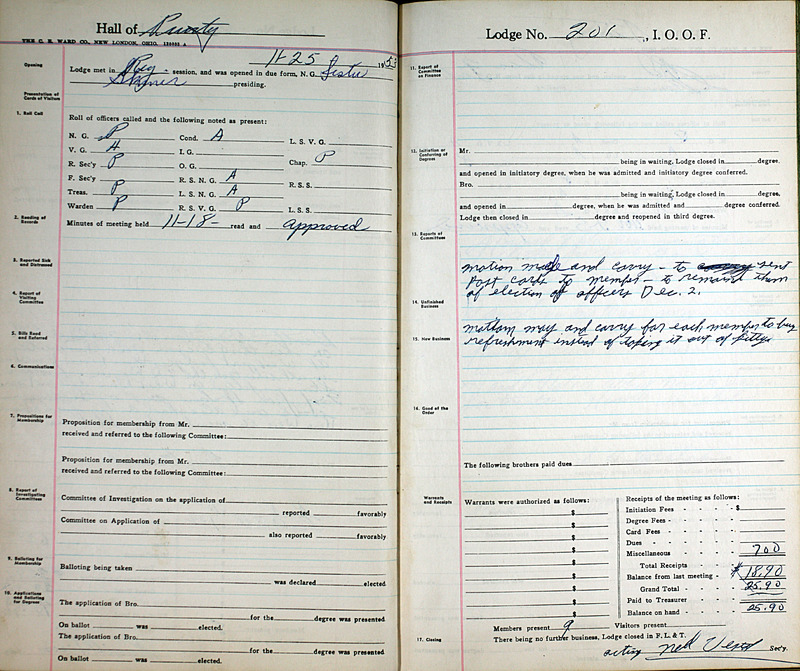 Hall of
THE C. E. WARD CO., NEW LONDON, OHIO. 120203 A
11-25 1953
Opening
Lodge met in Reg. session, and was opened in due form, N. G.
presiding.
Presentation of
Cards of Visitors
1. Roll Call
Roll of officers called and the following noted as present:
N. G. P Cond. A L. S. V. G.
V. G. A I. G. Chap. P
R. Sec'y P O. G.
F. Sec'y R. S. N. G. A R. S. S.
Treas. P L. S. N. G. A
Warden P R. S. V. G. P L. S. S.
2. Reading of
Records
Minutes of meeting held 11-18- read and approved
3. Reported Sick
and Distressed
4. Report of
Visiting
Committee
5. Bills Read
and Referred
6. Communications
7. Propositions for
Membership
Proposition for membership from Mr.
received and referred to the following Committee:
Proposition for membership from Mr.
received and referred to the following Committee:
8. Report of
Investigating
Committees
Committee of Investigation on the application of
reported favorably
Committee on Application of
also reported favorably
9. Balloting for
Membership
Balloting being taken
was declared elected.
10. Applications
and Balloting
for Degrees
The application of Bro.
for the degree was presented
On ballot was elected.
The application of Bro.
for the degree was presented
On ballot was elected.
Lodge No. 201, I. O. O. F.
11. Report of
Committee
on Finance
12. Initiation or
Conferring of
Degrees
Mr.
being in waiting, Lodge closed in degree,
and opened in initiatory degree, when he was admitted and initiatory degree conferred.
Bro.
being in waiting, Lodge closed in degree,
and opened in degree, when he was admitted and degree conferred.
Lodge then closed in degree and reopened in third degree.
13. Reports of
Committees
motion made and carry - to sent
Post cards to member - to remained them
of election of officers Dec. 2.
14. Unfinished
Business
15. New Business
may and carry for each member to buy
refreshment instead of taking it out of
16. Good of the
Order
The following brothers paid dues
Warrants
and Receipts
Warrants were authorized as follows:
$
$
$
$
$
$
$
$
$
Receipts of the meeting as follows:
Initiation Fees - $
Degree Fees - - - -
Card Fees - - - -
Dues - - - - -
Miscellaneous - - - - 7.00
Total Receipts - -
Balance from last meeting - $18.90
Grand Total - - 25.90
Paid to Treasurer - - -
Balance on hand - - - 25.90
Members present 9 Visitors present
17. Closing
There being no further business, Lodge closed in F. L. & T.
acting Sec'y.